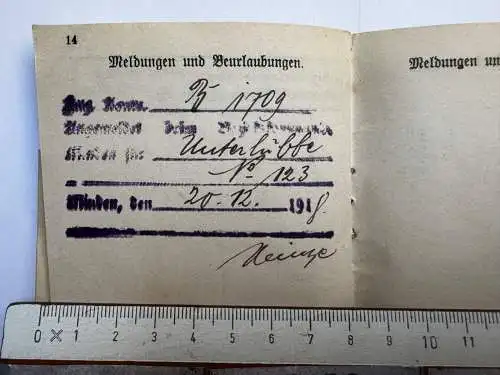 14
Meldungen und Beurlaubungen.
Meldungen un
B 1709
Angemeldet beim
Minden für Unterlübbe
No 123
Minden, den 20.12. 1918.
Heinze
0 × 1 2 3 4 5 6 7 8 9 10 11 12